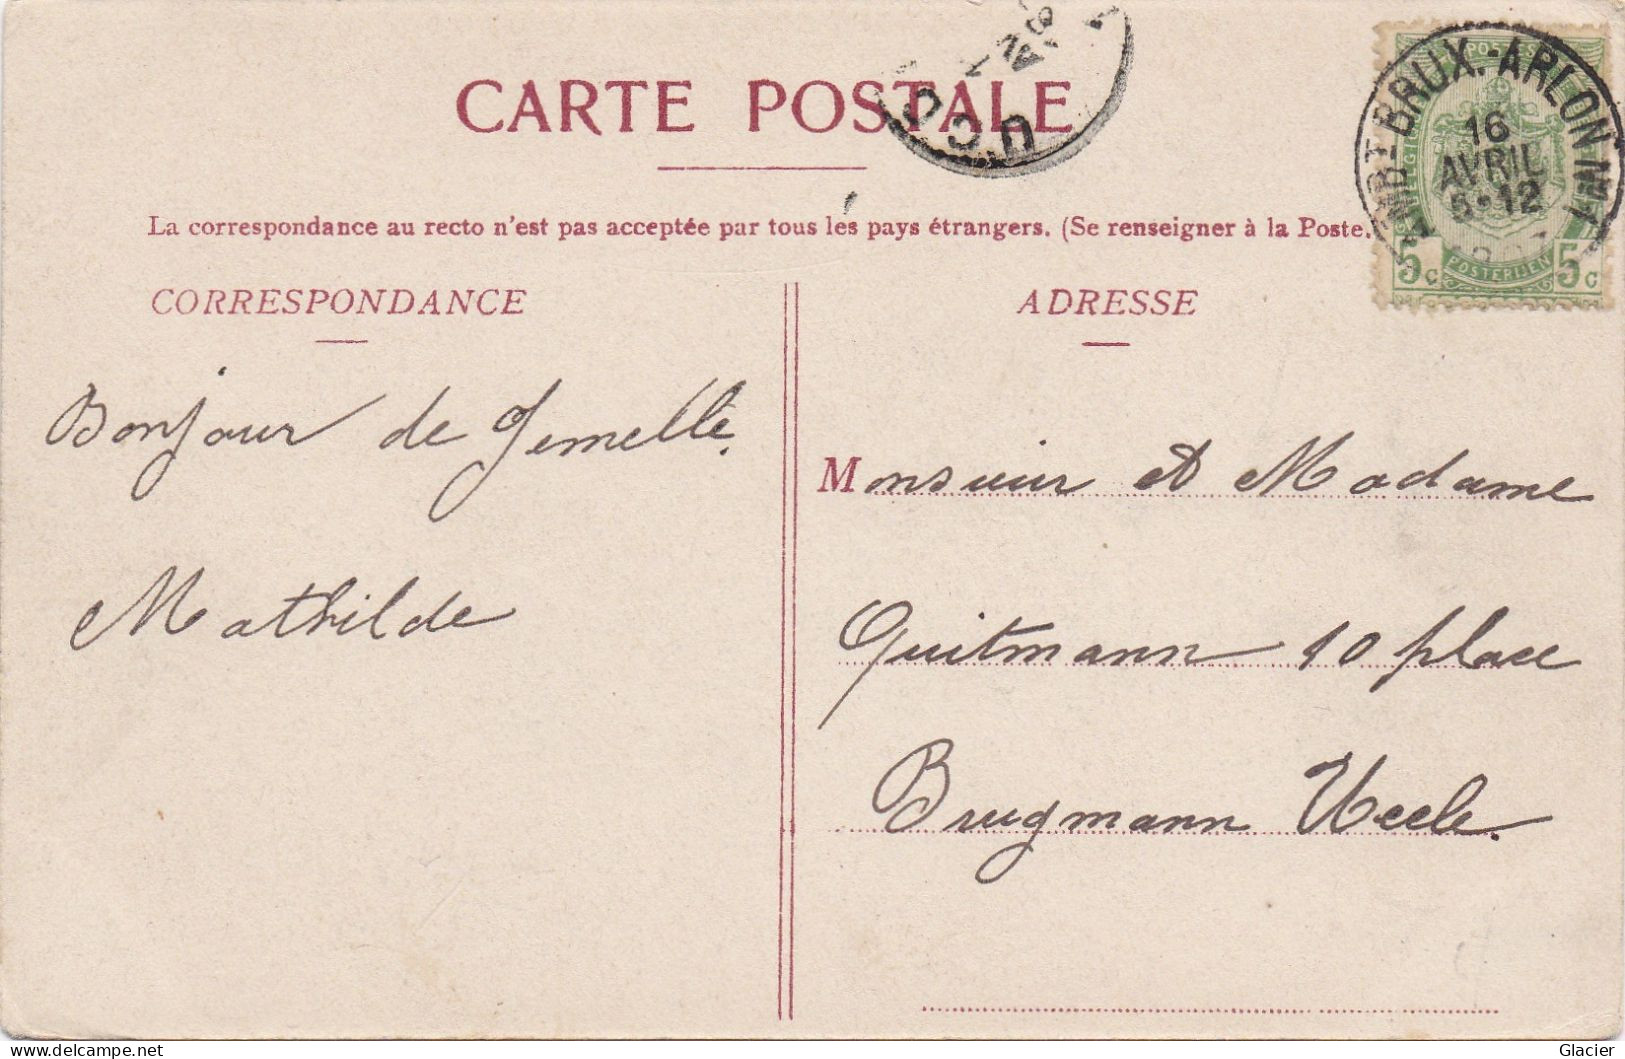 CARTE POSTALE
UCC
AMBT BRUX.-ARLON INT
16
AVRIL
5-12
POSTES
5c POSTERIJEN 5c
La correspondance au recto n'est pas acceptée par tous les pays étrangers. (Se renseigner à la Poste.
CORRESPONDANCE
Bonjour de Jemelle.
Mathilde
ADRESSE
Monsieur et Madame
Quitmann 10 place
Brugmann Uccle.
delcampe.net
Glacier